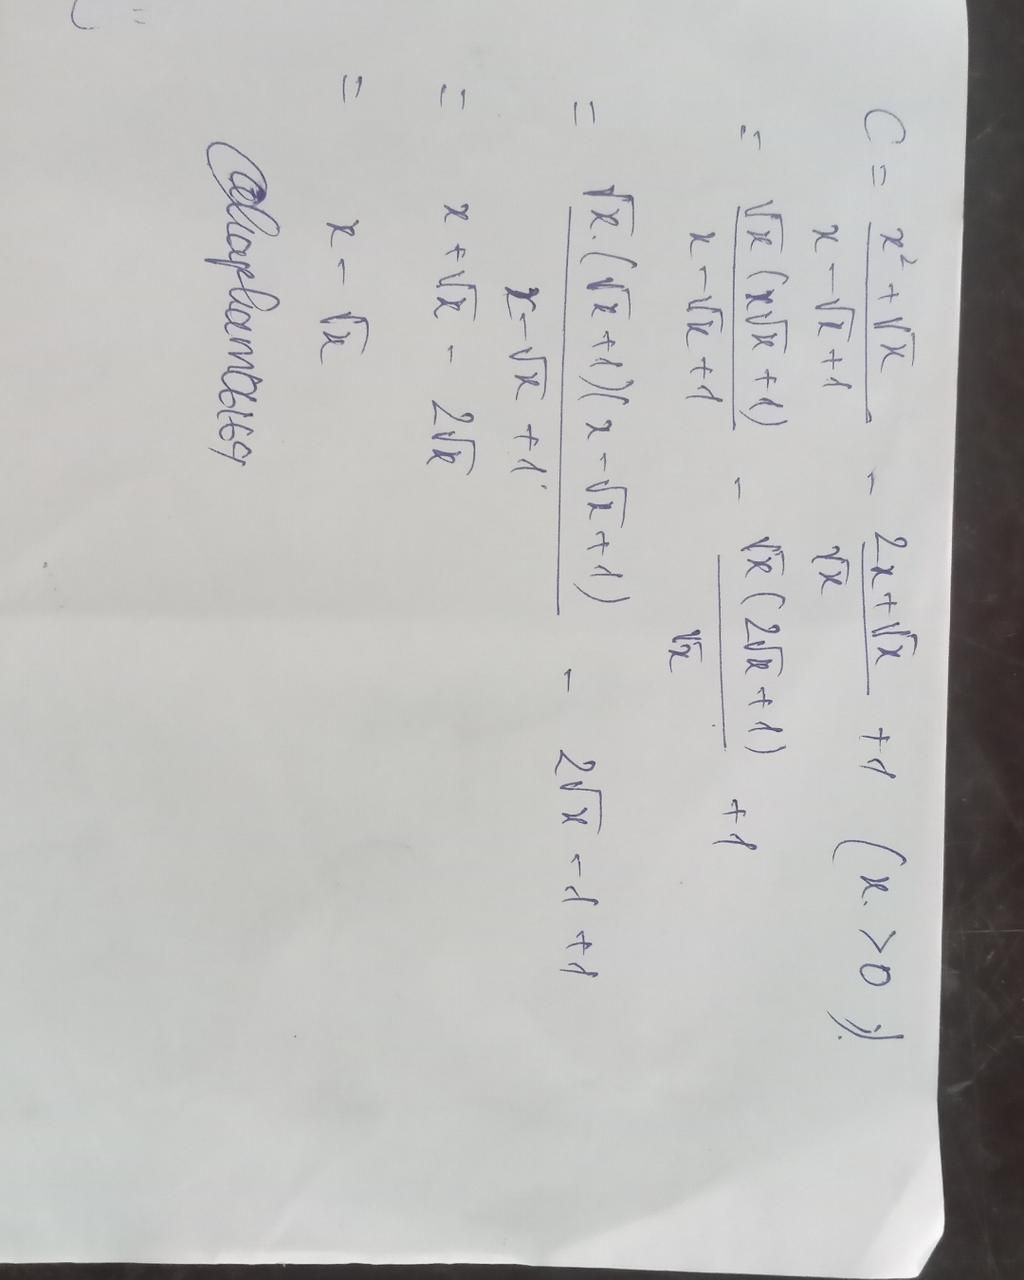 C = x² + √x / x - √x + 1 - 2x + √x / √x + 1 (x > 0).
= √x (x√x + 1) / x - √x + 1 - √x (2√x + 1) / √x + 1
= √x. (√x + 1)(x - √x + 1) / x - √x + 1 - 2√x - 1 + 1
= x + √x - 2√x
= x - √x